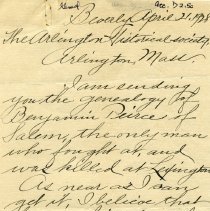 Beverly April 21, 1938
The Arlington Historical society
Arlington, Mass.
I am sending
you the genealogy of
Benjamin Peirce of
Salem, the only man
who fought at, and
was killed at Lexington
As near as I can
get it, I believe that